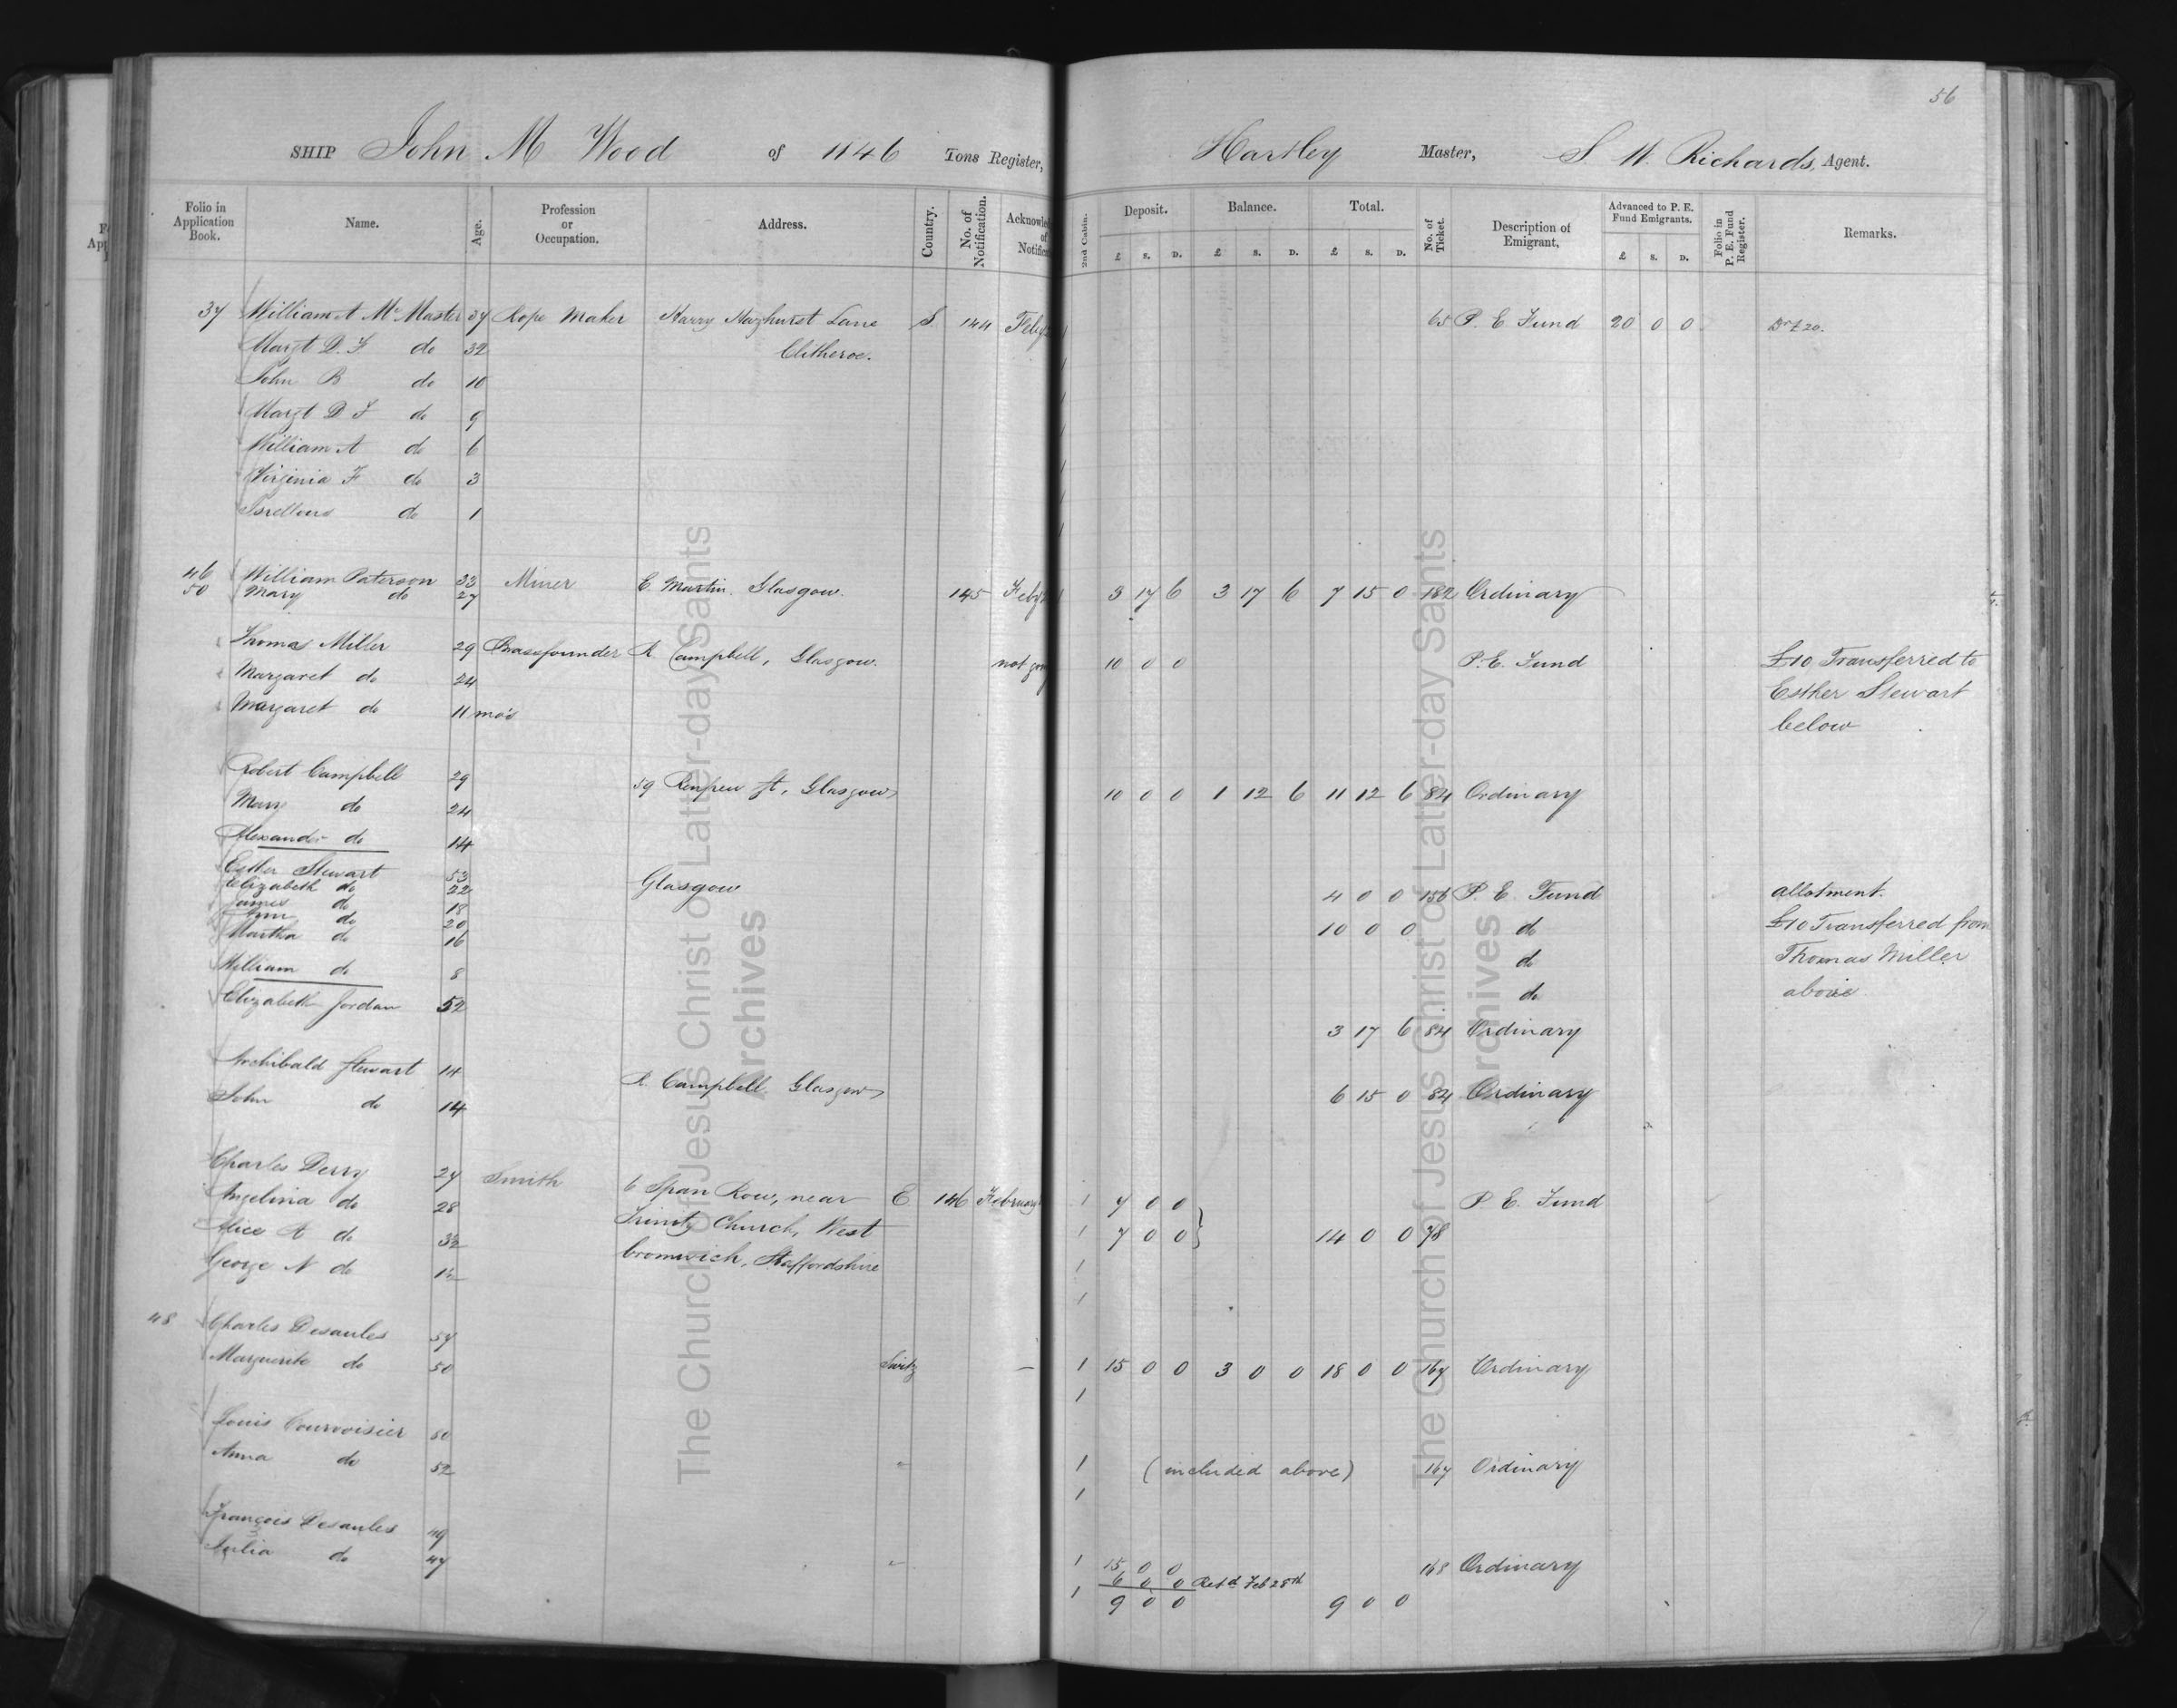 56
SHIP John M Wood of 1146 Tons Register, Hartley Master, S. W. Richards, Agent.
Folio in Application Book. Name. Age. Profession or Occupation. Address. Country. No. of Notification. 2nd Cabin. Deposit. Balance. Total. No. of Ticket. Description of Emigrant, Advanced to P. E. Fund Emigrants. Folio in P. E. Fund Register. Remarks.
£ S. D. £ S. D. £ S. D. £ S. D.
37 William A Mc Master 37 Rope Maker Lane S 144 65 P. E. Fund 20 0 0 Dr £20.
Margt D. F do 32 Clitheroe.
John B do 10
Margt D F do 9
William A do 6
Virginia F do 3
do 1
46 William Paterson 33 Miner E. Martin. Glasgow. 145 3 17 6 3 17 6 7 15 0 182 Ordinary
50 Mary do 27
Thomas Miller 29 Brassfounder R. Campbell, Glasgow. 10 0 0 P. E. Fund £10 Transferred to
Margaret do 24 Esther Stewart
Margaret do 11 mos below
Robert Campbell 29 59 Renfrew St, Glasgow 10 0 0 1 12 6 11 12 6 84 Ordinary
Mary do 24
Alexander do 14
Esther Stewart 53 Glasgow 4 0 0 156 P. E. Fund allotment.
Elizabeth do 22
James do 18
Ann do 20 10 0 0 do £10 Transferred from
Martha do 16
William do 8 do Thomas Miller
Elizabeth Jordan 52 do above
3 17 6 84 Ordinary
Archibald Stewart 14 R. Campbell Glasgow 6 15 0 84 Ordinary
John do 14
Charles Derry 27 Smith 6 Span Row, near E 146 February 1 7 0 0 P. E. Fund
Angelina do 28 Trinity Church, West 1 7 0 0 } 14 0 0 78
Alice A do 3½ bromwich, Staffordshire 1
George N do 1½ 1
48 Charles Desaules 57
Marguerite do 50 Switz — 1 15 0 0 3 0 0 18 0 0 167 Ordinary
1
Louis Courvoisier 60
Anna do 52 " 1 (included above) 167 Ordinary
1
François Desaules 49
Julia do 47 " 1 15 0 0 168 Ordinary
6 0 0 Retd Feb 28th
1 9 0 0 9 0 0
The Church of Jesus Christ of Latter-day Saints
Archives
The Church of Jesus Christ of Latter-day Saints
Archives